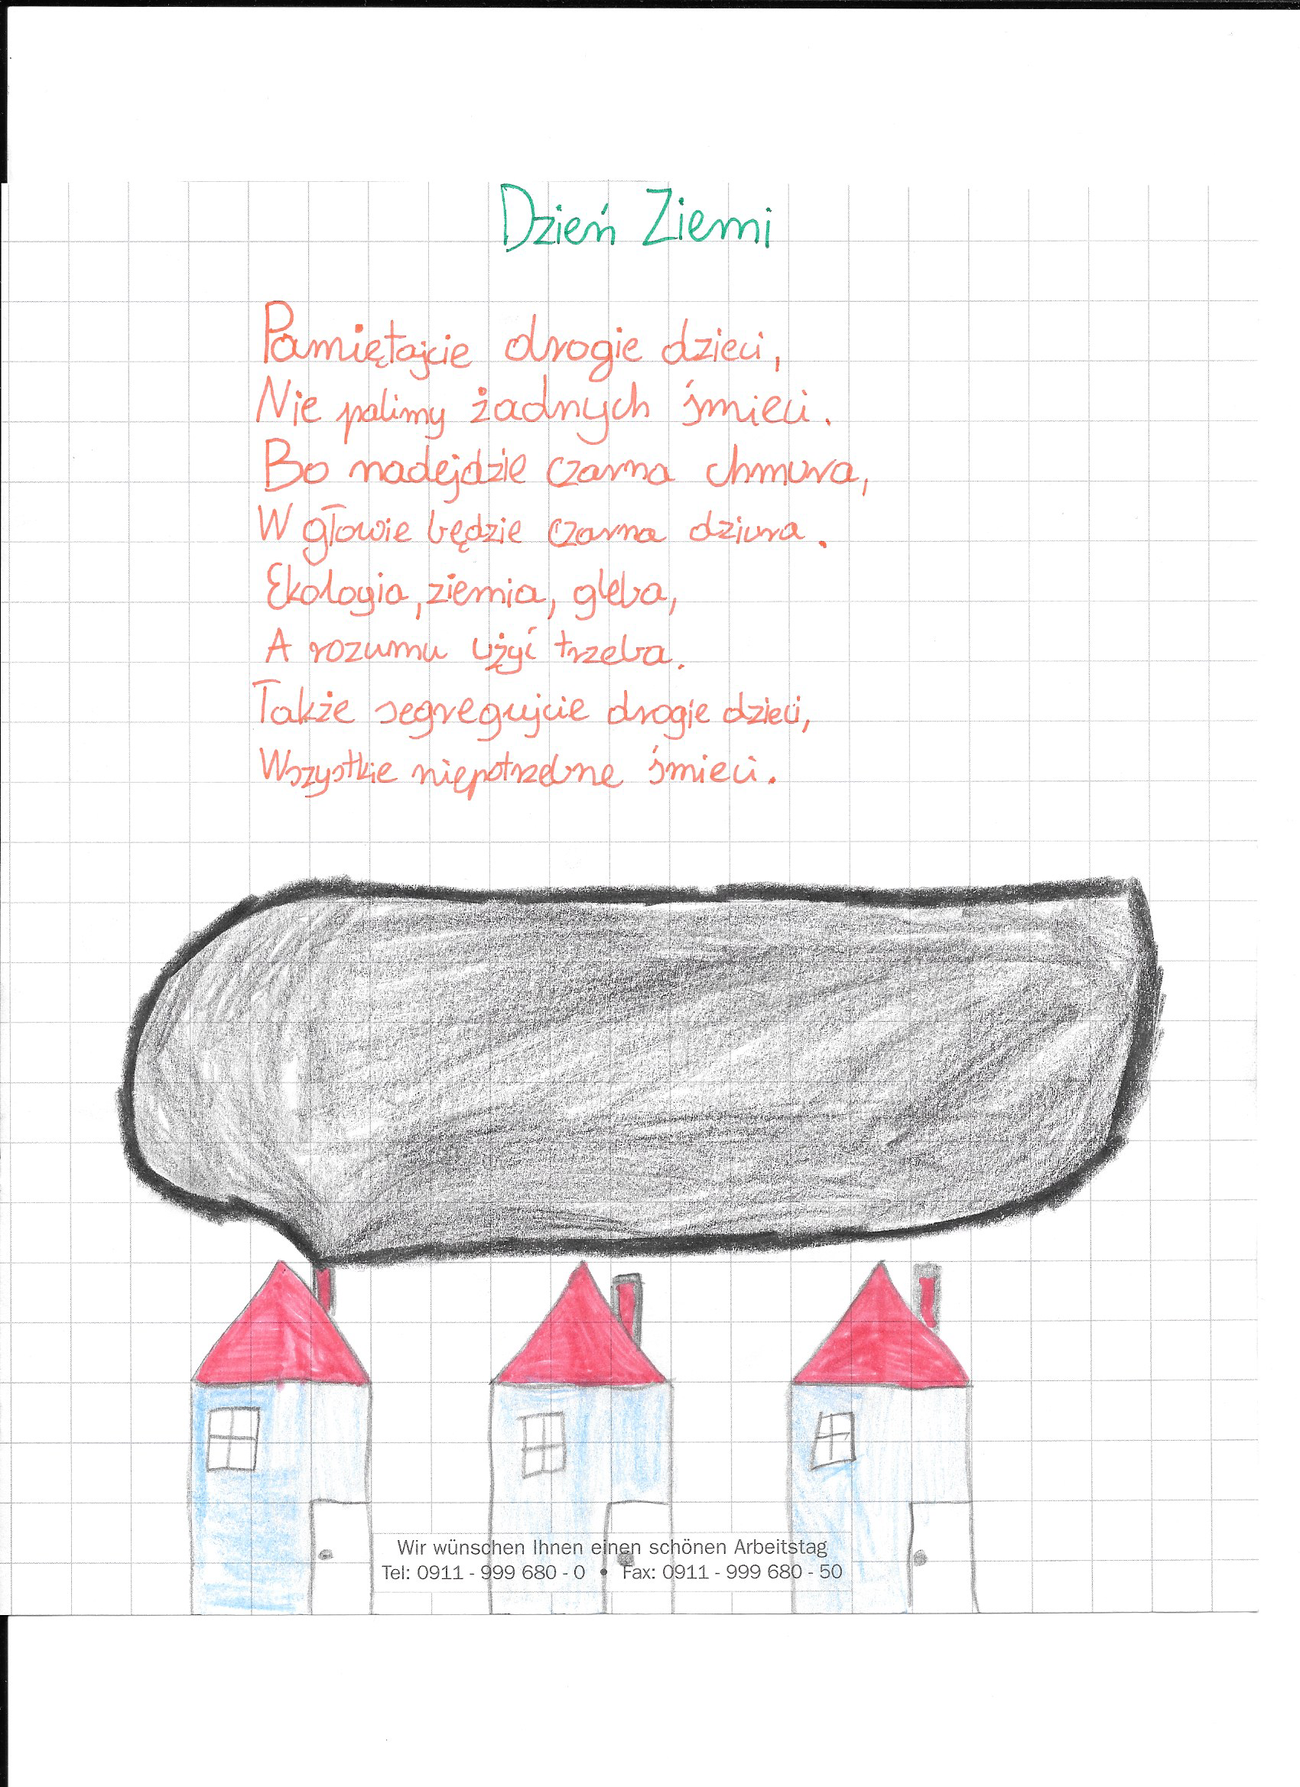 Dzień Ziemi
Pamiętajcie drogie dzieci,
Nie palimy żadnych śmieci.
Bo nadejdzie czarna chmura,
W głowie będzie czarna dziura.
Ekologia, ziemia, gleba,
A rozumu użyć trzeba.
Także segregujcie drogie dzieci,
Wszystkie niepotrzebne śmieci.
Wir wünschen Ihnen einen schönen Arbeitstag
Tel: 0911 - 999 680 - 0 • Fax: 0911 - 999 680 - 50